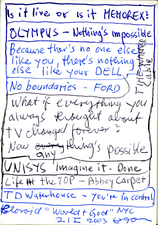 Is it live or is it MEMOREX?
OLYMPUS - Nothing's impossible
Because there's no one else
like you, there's nothing
else like your DELL
No boundaries - FORD
What if everything you
always thought about
TV changed forever?
Now everything's possible
any
UNISYS Imagine it. Done.
Life At the TOP - Abbey Carpet
TD Waterhouse - You're in control
"World + God" NYC
21 2003
Time Warner
Cable